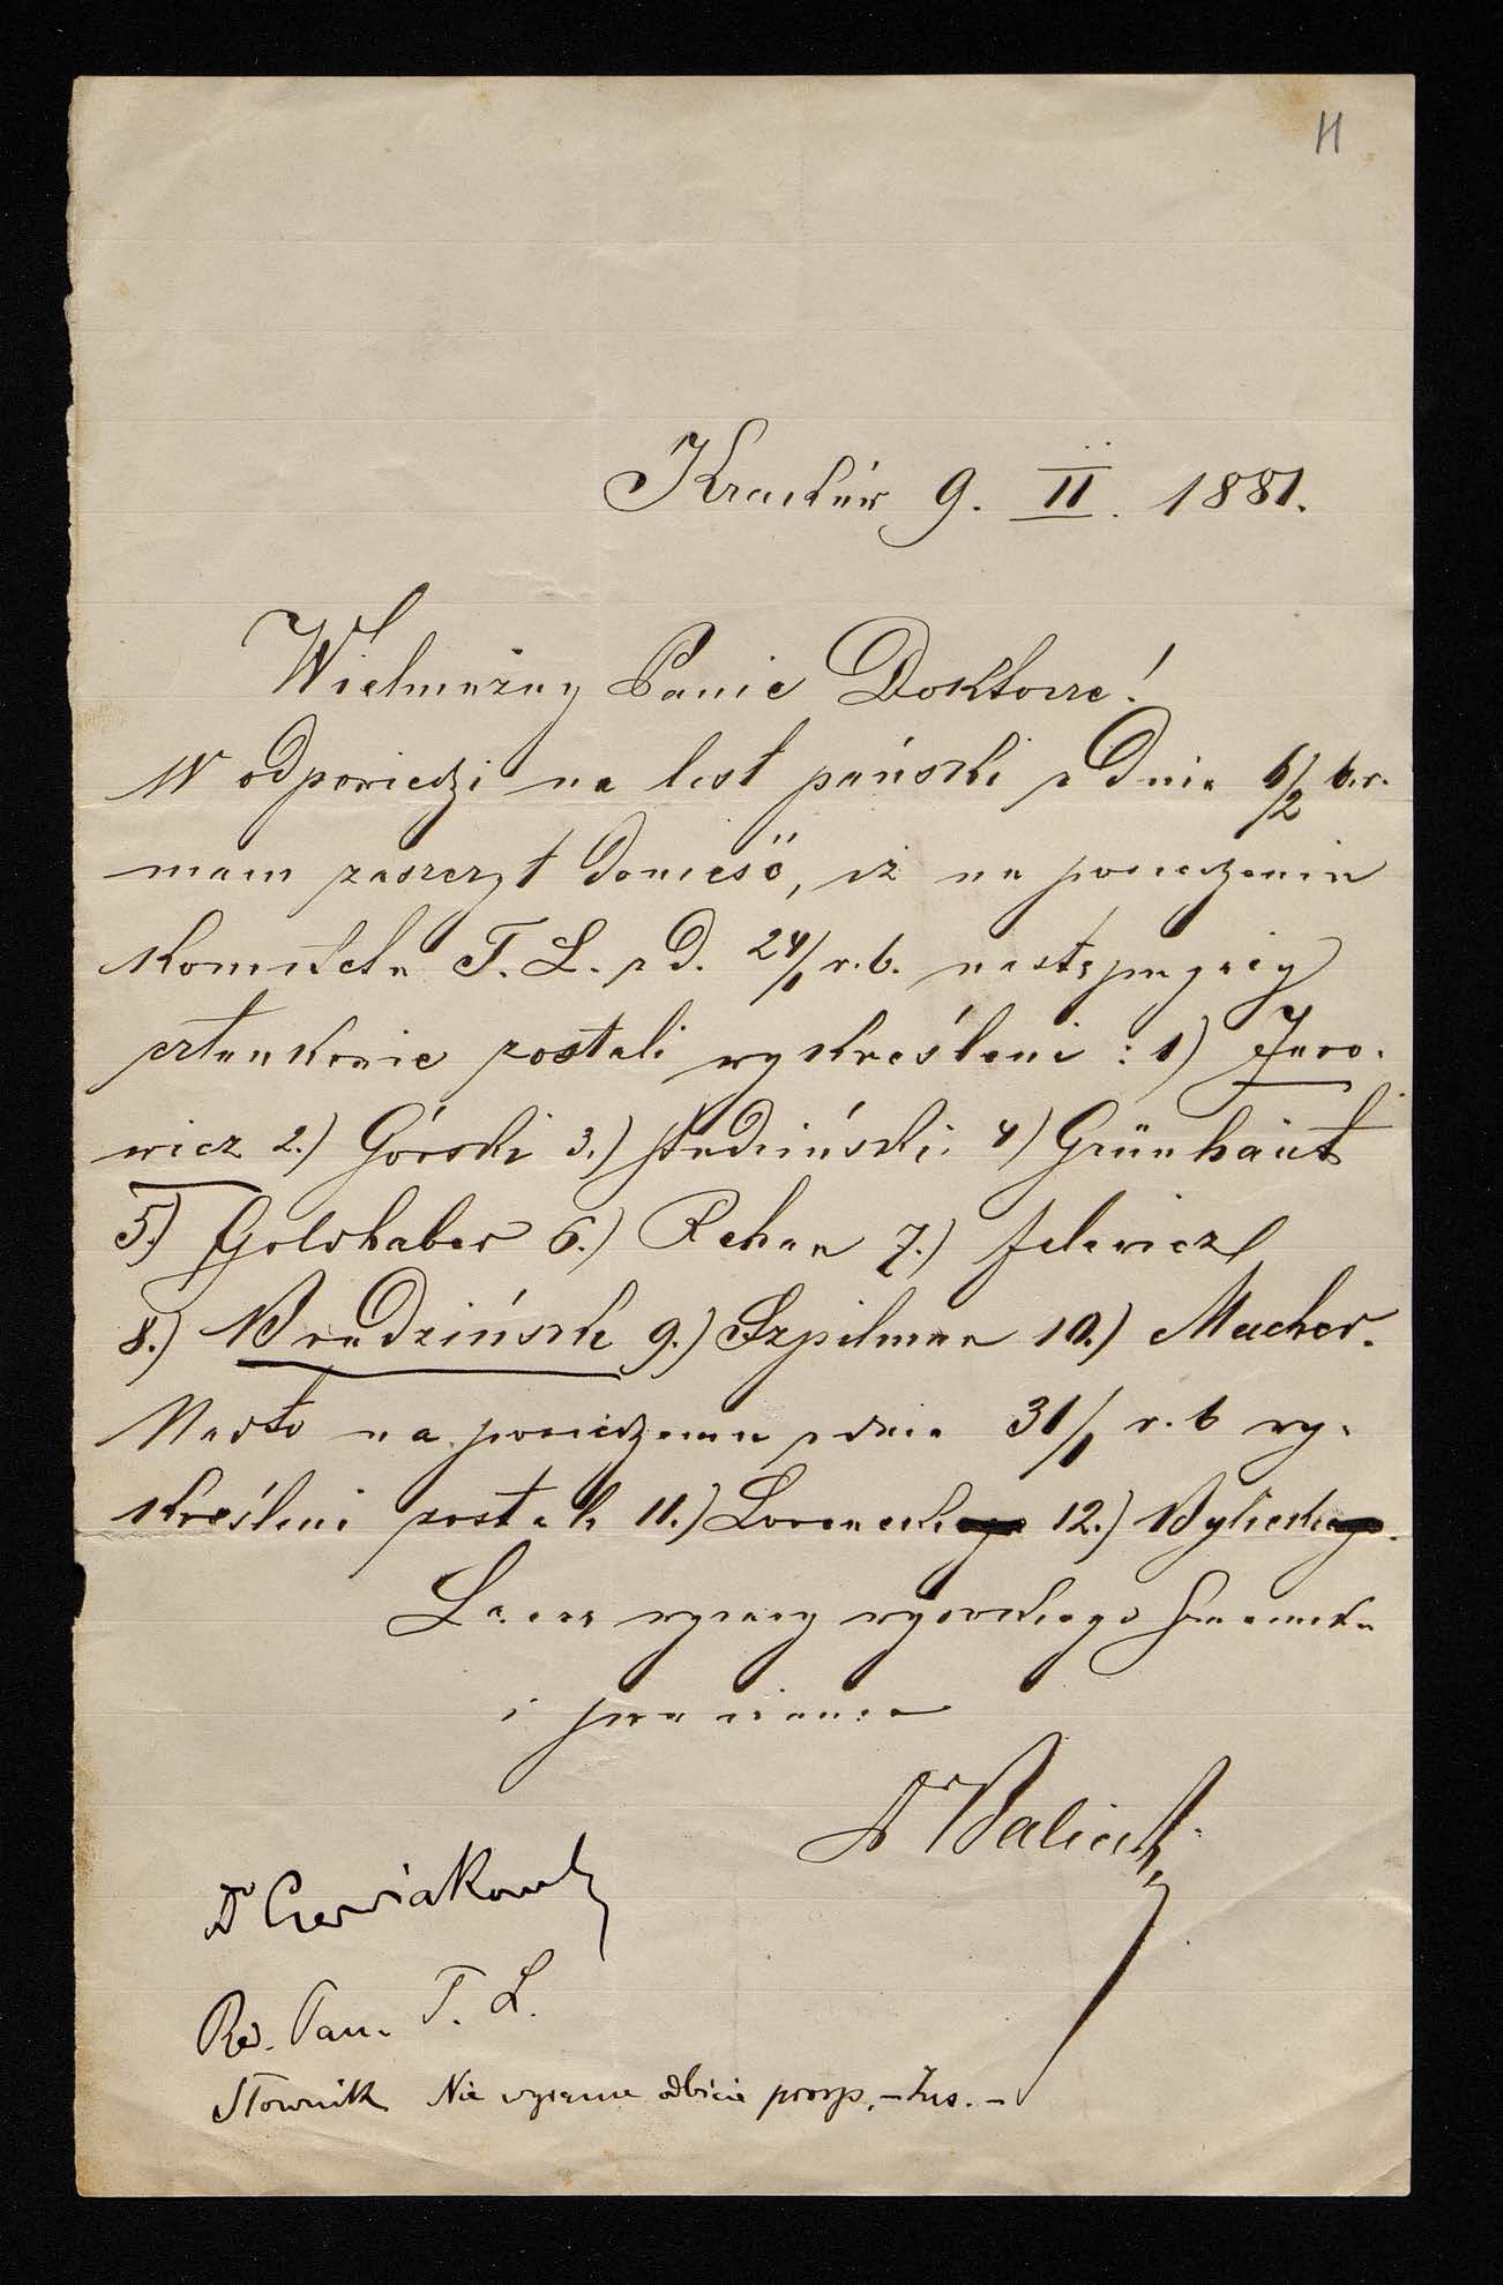 11
Kraków 9. II. 1881.
Wielmożny Panie Doktorze!
W odpowiedzi na list pański z dnia 6/2 b.r.
mam zaszczyt donieść, iż na posiedzeniu
Komitetu T. L. z d. 24/1 r.b. następujący
członkowie zostali wykreśleni : 1) Juro-
wicz 2.) Górski 3.) 4) Grünhäut
5.) Goldhaber 6.) Rehan 7.) Jelewicz
8.) Brudziński 9.) Szpilman 10.) Macher.
Nadto na posiedzeniu z dnia 31/1 r.b wy-
kreśleni zostali 11.) 12.)
Łączę wyrazy wysokiego szacunku
i poważania
Dr
Dr
Red. Pam. T. L.
Słownik Nie odbicie